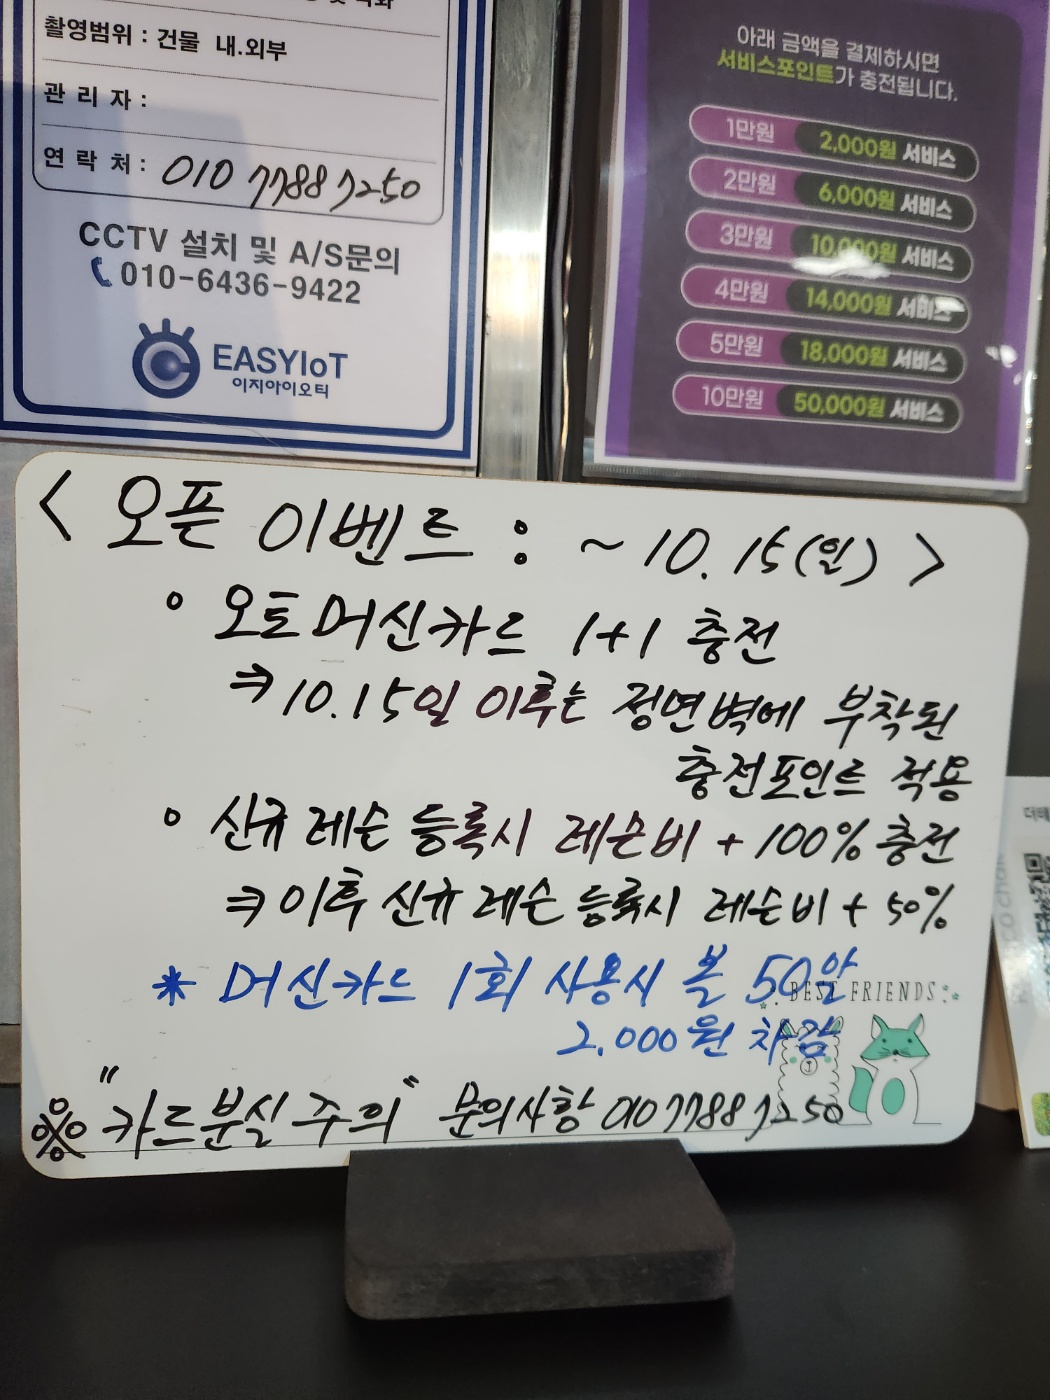 촬영범위 : 건물 내.외부
관 리 자 :
연 락 처 : 010 7788 7250
CCTV 설치 및 A/S문의
010-6436-9422
EASYIoT
이지아이오티
아래 금액을 결제하시면
서비스포인트가 충전됩니다.
1만원 2,000원 서비스
2만원 6,000원 서비스
3만원 10,000원 서비스
4만원 14,000원 서비스
5만원 18,000원 서비스
10만원 50,000원 서비스
< 오픈 이벤트 : ~10.15(일) >
○ 오토머신카드 1+1 충전
⇒ 10.15일 이후는 정면벽에 부착된
충전포인트 적용
○ 신규레슨 등록시 레슨비 + 100% 충전
⇒ 이후 신규레슨 등록시 레슨비 + 50%
* 머신카드 1회 사용시 볼 50알
2.000원 차감
BEST FRIENDS
※ "카드분실 주의" 문의사항 010 7788 7250